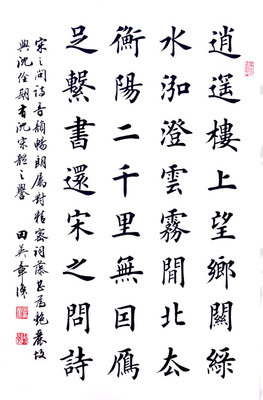 逍遥樓上望鄉關綠
水泓澄雲霧間北厺
衡陽二千里無囙鴈
足繫書還宋之問詩
宋之问詩音韻暢朗屬對精密詞藻甚為艷麗故
與沈佺期有沈宋體之譽 田英章